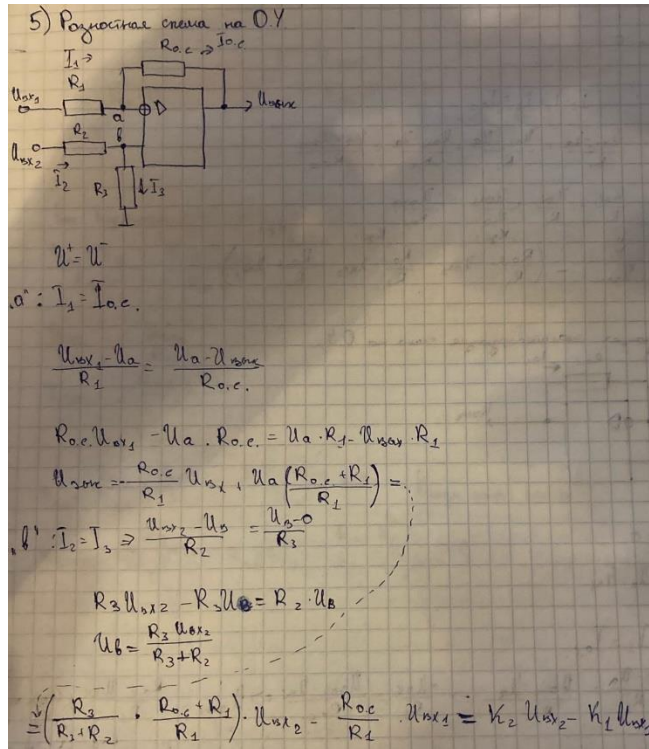 5) Разностная схема на О.У
I₁→
Rо.с → Iо.с
R₁
Uвх₁
a
▷
Uвых
R₂
в
Uвх₂
I₂
R₃
↓I₃
U⁺ = U⁻
„a“: I₁ = Iо.с.
(Uвх₁ - Ua)/R₁ = (Ua - Uвых)/Rо.с.
Rо.с. Uвх₁ - Ua · Rо.с. = Ua · R₁ - Uвых · R₁
Uвых = -(Rо.с/R₁) Uвх + Ua((Rо.с + R₁)/R₁) =
„в“: I₂ = I₃ ⇒ (Uвх₂ - Uв)/R₂ = (Uв - 0)/R₃
R₃ Uвх2 - R₃ Uв = R₂ · Uв
Uв = (R₃ Uвх₂)/(R₃ + R₂)
= (R₃/(R₃ + R₂) · (Rо.с + R₁)/R₁) · Uвх₂ - (Rо.с/R₁) · Uвх₁ = K₂ Uвх₂ - K₁ Uвх₁